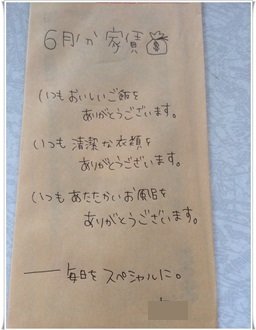 6月分 家賃
いつも おいしいご飯を
ありがとうございます。
いつも 清潔な衣類を
ありがとうございます。
いつも あたたかいお風呂を
ありがとうございます。
── 毎日を スペシャルに。